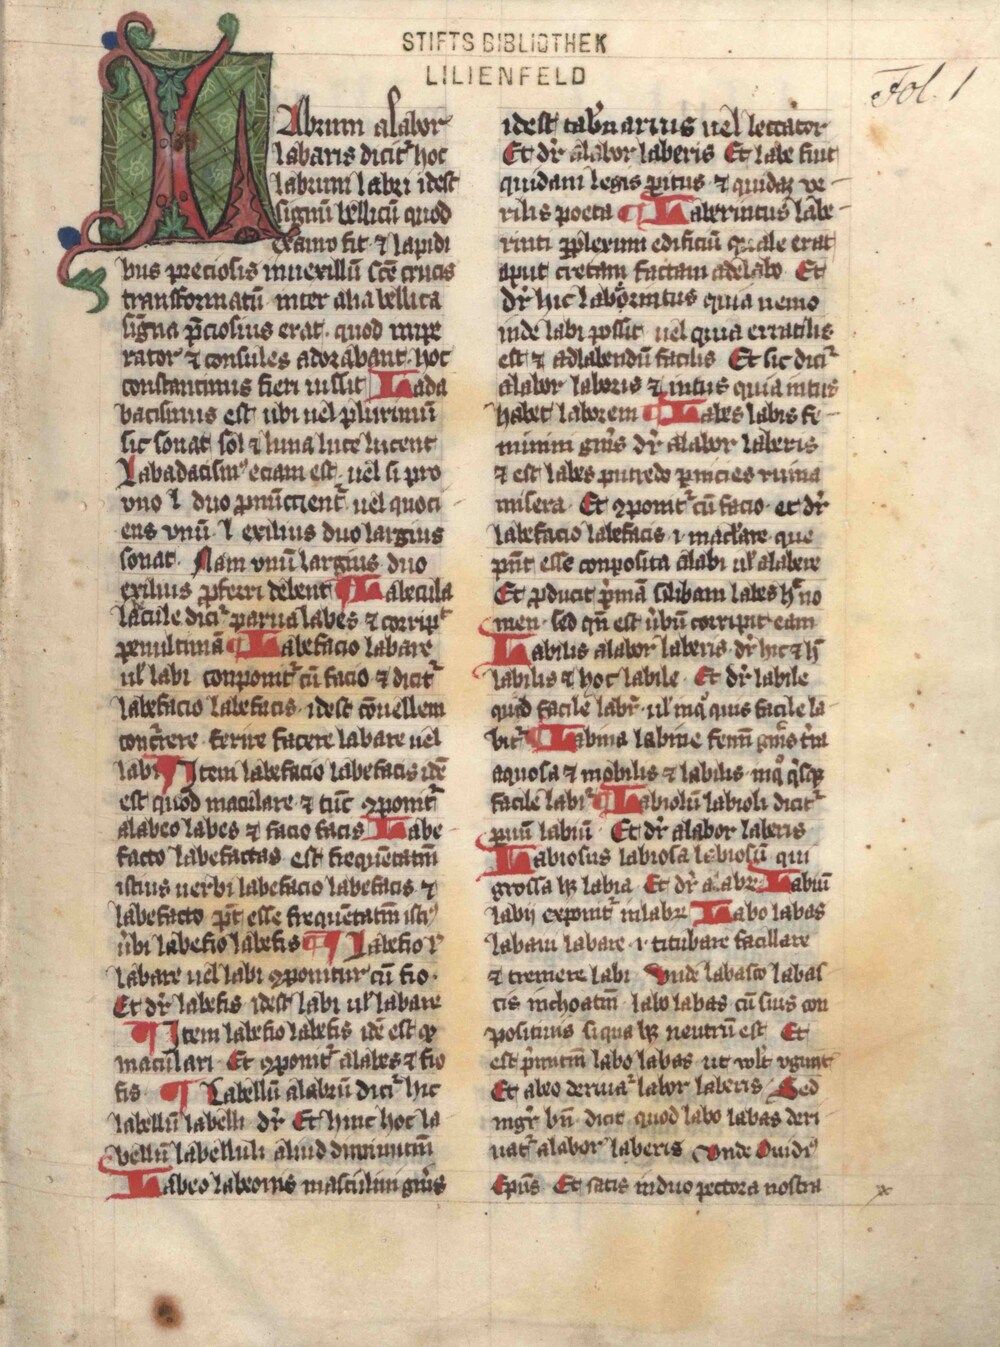 STIFTSBIBLIOTHEK
LILIENFELD
Fol. 1
LAbrum alabor
labaris dicit᷑ hoc
labrum labri idest
signū bellicū quod
ex auro fit ⁊ lapidi
bus preciosis in uexillū sc̄e crucis
transformatū inter alia bellica
signa p̄ciosius erat quod impe
rator ⁊ consules adorabant hoc
constantinus fieri iussit Lada
bacismus est ubi uel plurimū
sic sonat sol ⁊ luna luce lucent
Labadacism᷒ eciam est uel si pro
vno l duo pronūcient᷑ uel quoci
ens vnū l exilius duo largius
sonat Nam vnū largius duo
exilius proferri debent ¶ Labecula
labecule dicit᷑ parua labes ⁊ corripit᷑
penultimā ¶ Labefacio labare
ul̄ labi componit᷑ cū facio ⁊ dicit᷑
labefacio labefacis idest cōuellem
facere labare uel
labi ¶ Item labefacio labefacis idē
est quod maculare ⁊ tūc ꝯponit᷑
a labeo labes ⁊ facio facis Labe
facto labefactas est frequētatiū
istius uerbi labefacio labefacis ⁊
labefacto pn̄t esse frequētatiū isti᷒
ūbi labefio labefis ¶ Labefio
labare uel labi ꝯponitur cū fio
Et dr̄ labefis idest labi ul̄ labare
¶ Item labefio labefis idē est qͥ
maculari Et ꝯponit᷑ a labes ⁊ fio
fis ¶ Labellū a labrū dicit᷑ hic
labellū labelli dr̄ Et hinc hoc la
bellū labelluli aliud diminutiū
Labeo labeonis masculini gn̄is
idest tabernarius uel leccator
Et dr̄ a labor laberis Et labe fuit
quidam legis peritus ⁊ quidaʒ ve
rilis poeta ¶ Laberintus labe
rinti ꝑplexum edificiū quale erat
aput cretam factam a dedalo Et
dr̄ hic laborintus quia nemo
inde labi possit uel quia erratilis
est ⁊ ad labendū facilis Et sic dicit᷑
a labor laboris ⁊ intus quia intus
habet laborem ¶ Labes labis fe
minini gn̄is dr̄ a labor laberis
⁊ est labes putredo ꝑnicies ruina
misera Et ꝯponit᷑ cū facio et dr̄
labefacio labefacis i maclare que
pn̄t esse conposita a labi ul̄ a labere
Et ꝓducit p̄mā sillabam labes no
men sed qn̄ est ūbū corripit eam
Labilis a labor laberis dr̄ hic ⁊ h̄
labilis ⁊ hoc labile Et dr̄ labile
quid facile labit᷑ ul̄ in qͦ quis facile la
bit᷑ ¶ Labina labine femī gn̄is tr̄a
aquosa ⁊ mobilis ⁊ labilis in qͣ qͥsqʒ
facile labit᷑ ¶ Labiolū labioli dicit᷑
ꝑuū labiū Et dr̄ a labor laberis
Labiosus labiosa labiosū qui
grossa hʒ labia Et dr̄ a labr̄ Labiū
labij exponit᷑ in labr̄ Labo labas
labaui labare i titubare facillare
⁊ tremere labi Vnde labasco labas
cis inchoatiū labo labas cū suis con
positiuis si qua hʒ neutrū est Et
est p̄mitiū labo labas ut
Et a beo deriuat᷑ labor laberis Sed
mgr̄ bn̄ dicit quod labo labas deri
uat᷑ a labor laberis Vnde Ouidi᷒
Epūs Et satis in duo pectora nostra